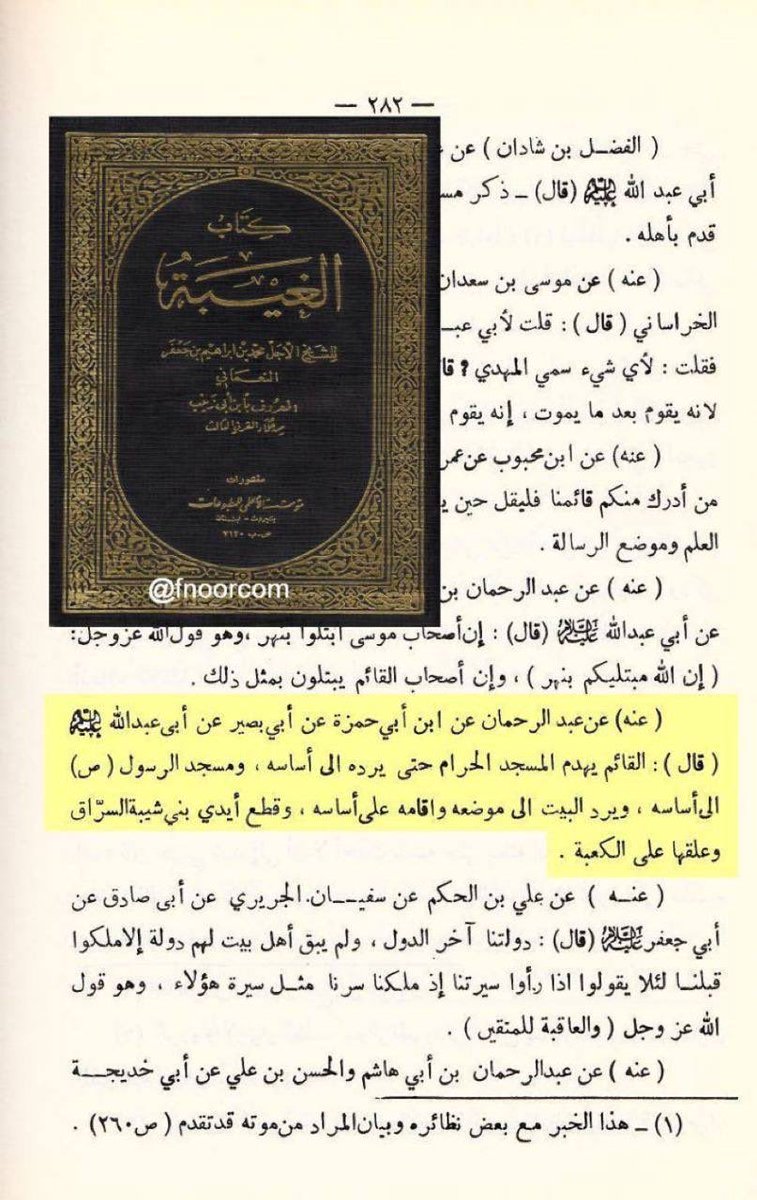 — ٢٨٢ —
( الفضـل بن شاذان ) عن
أبي عبد الله عليه السلام (قال) ـ ذكر
قدم بأهله .
( عنه ) عن موسى بن سعدان
الخراساني ( قال ) : قلت لأبي
فقلت : لأي شيء سمي المهدي ?
لانه يقوم بعد ما يموت ، إنه يقوم
( عنه) عن ابن محبوب عن
من أدرك منكم قائمنا فليقل حين
العلم وموضع الرسالة .
( عنه ) عن عبد الرحمان بن
عن أبي عبدالله عليه السلام (قال) : إن أصحاب موسى ابتلوا بنهر ،وهو قول الله عزوجل:
( إن الله مبتليكم بنهر ) ، وإن أصحاب القائم يبتلون بمثل ذلك .
( عنه) عن عبد الرحمان عن ابن أبي حمزة عن أبي بصير عن أبى عبدالله عليه السلام
( قال ) : القائم يهدم المسجد الحرام حتى يرده الى أساسه ، ومسجد الرسول ( ص)
الى أساسه ، ويرد البيت الى موضعه واقامه على أساسه ، وقطع أيدي بني شيبة السرّاق
وعلقها على الكعبة .
( عنـه ) عن علي بن الحكم عن سفيـان. الجريري عن أبى صادق عن
أبي جعفر عليه السلام (قال) : دولتنا آخر الدول ، ولم يبق أهل بيت لهم دولة إلا ملكوا
قبلنـا لئلا يقولوا اذا رأوا سيرتنا إذ ملكنا سرنا مثـل سيرة هؤلاء ، وهو قول
الله عز وجل ( والعاقبة للمتقين ) .
( عنه ) عن عبدالرحمان بن أبي هاشم والحسن بن علي عن أبي خديجـة
(١) ـ هذا الخبر مع بعض نظائره وبيان المراد من موته قد تقدم ( ص ٢٦٠) .
كتاب
الغيبة
للشيخ الأجل محمد بن ابراهيم بن جعفر
النعماني
المعروف بابن أبي زينب
منشورات
مؤسسة الأعلمي للمطبوعات
بيروت - لبنان
ص.ب ٧١٢٠
@fnoorcom